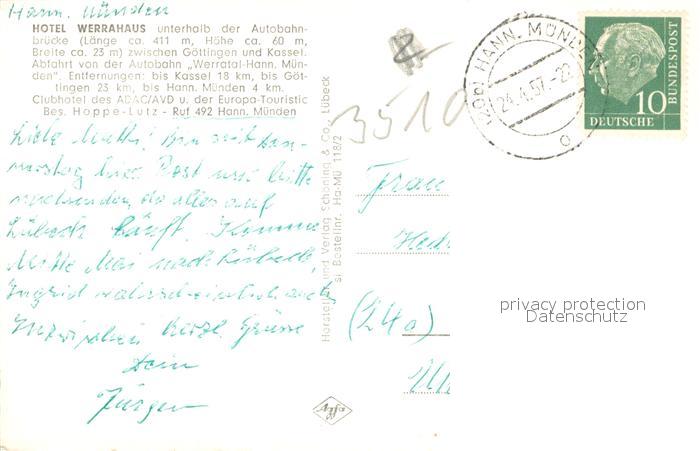 Hann. Münden
HOTEL WERRAHAUS unterhalb der Autobahn-
brücke (Länge ca. 411 m, Höhe ca. 60 m,
Breite ca. 23 m) zwischen Göttingen und Kassel.
Abfahrt von der Autobahn „Werratal-Hann. Mün-
den". Entfernungen: bis Kassel 18 km, bis Göt-
tingen 23 km, bis Hann. Münden 4 km.
Clubhotel des ADAC/AVD u. der Europa-Touristic
Bes. Hoppe-Lutz - Ruf 492 Hann. Münden
Liebe Mutti! Bin seit Don-
nerstag hier. Post und bitte
nachsenden, da alles auf
Lübeck läuft. Komme
Mitte Mai nach Lübeck,
Ingrid wahrscheinlich auch
Inzwischen herzl. Grüsse
Dein
Jürgen
Agfa
Hersteller und Verlag Schöning & Co., Lübeck
Bestellnr. Ha-Mü 118/2
3510
HANN. MÜNDEN
24.4.57.-22
10
DEUTSCHE
BUNDESPOST
Frau
Hed
(24a)
privacy protection
Datenschutz